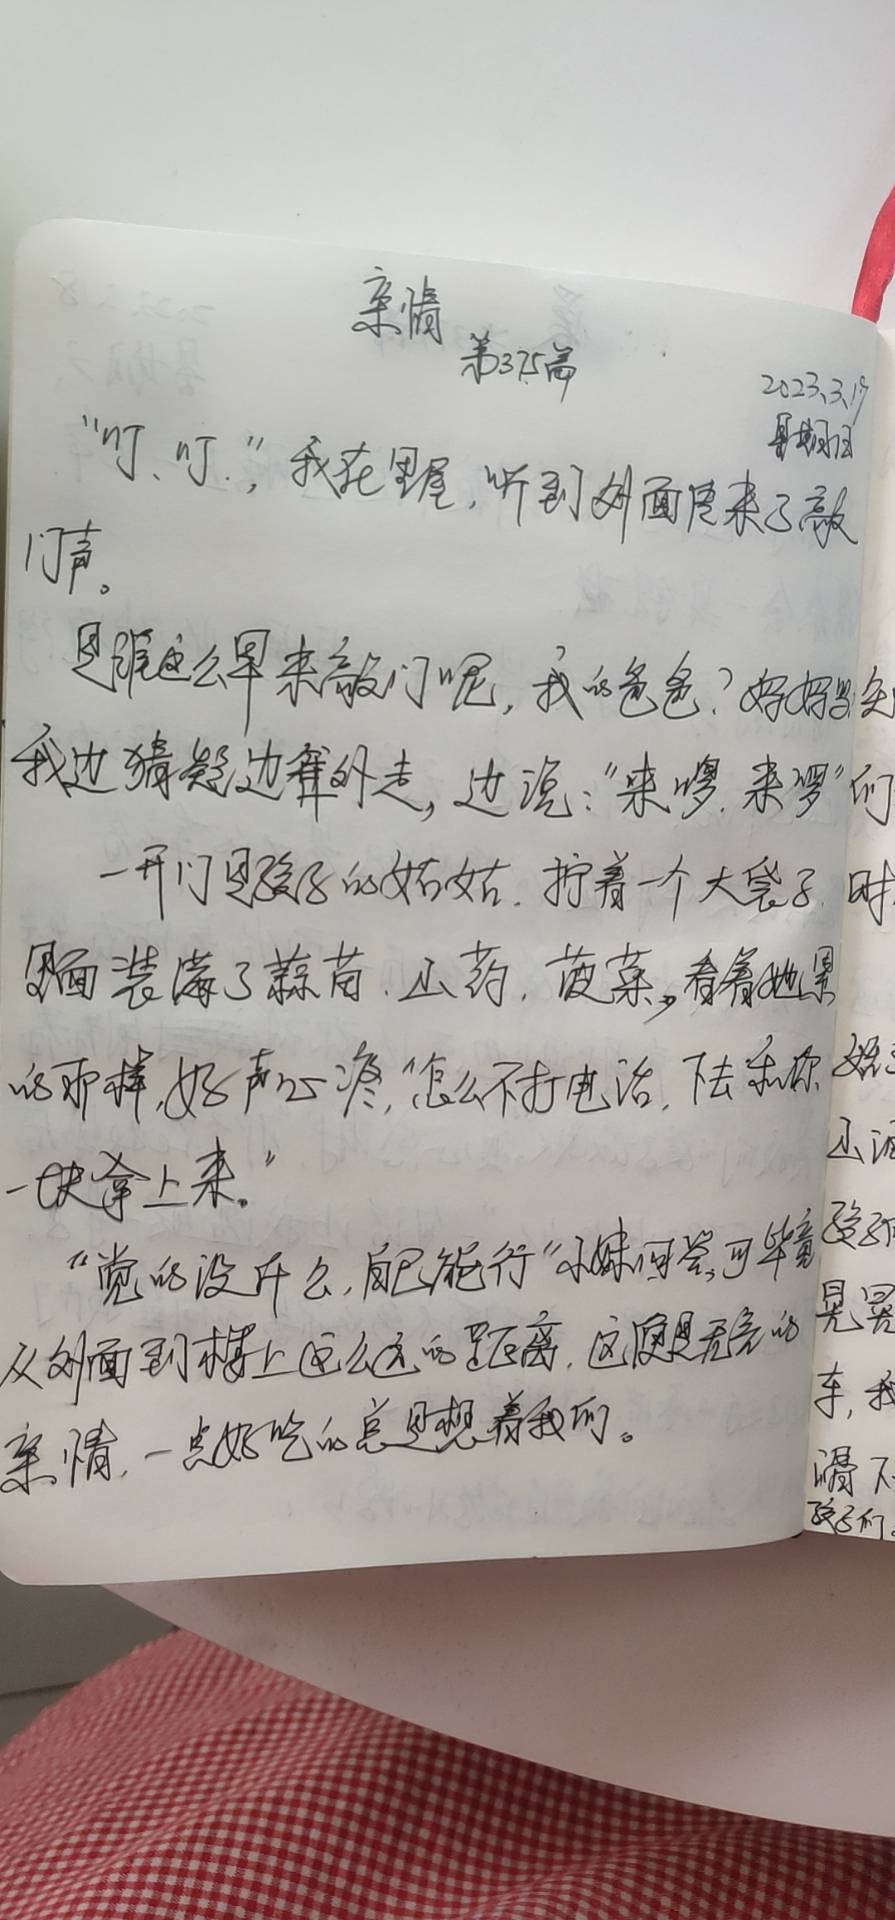 亲情
第375篇
2023.3.19
星期日
“叮、叮.”，我在里屋，听到外面传来了敲
门声。
是谁这么早来敲门呢，我的爸爸？好好
我边猜疑边往外走，边说：“来啰.来啰”
一开门是孩子的姑姑.拧着一个大袋子.
里面装满了蒜苗.山药，菠菜，看着她累
的那样，好声心疼，“怎么不打电话，下去和你
一块拿上来。”
“觉的没什么，自己能行”小妹回答，可毕竟
从外面到楼上这么远的距离，这便是无言的
亲情，一点好吃的总是想着我们。
们
时
还
孩子们
晃晃
车，我
滑下
孩子们